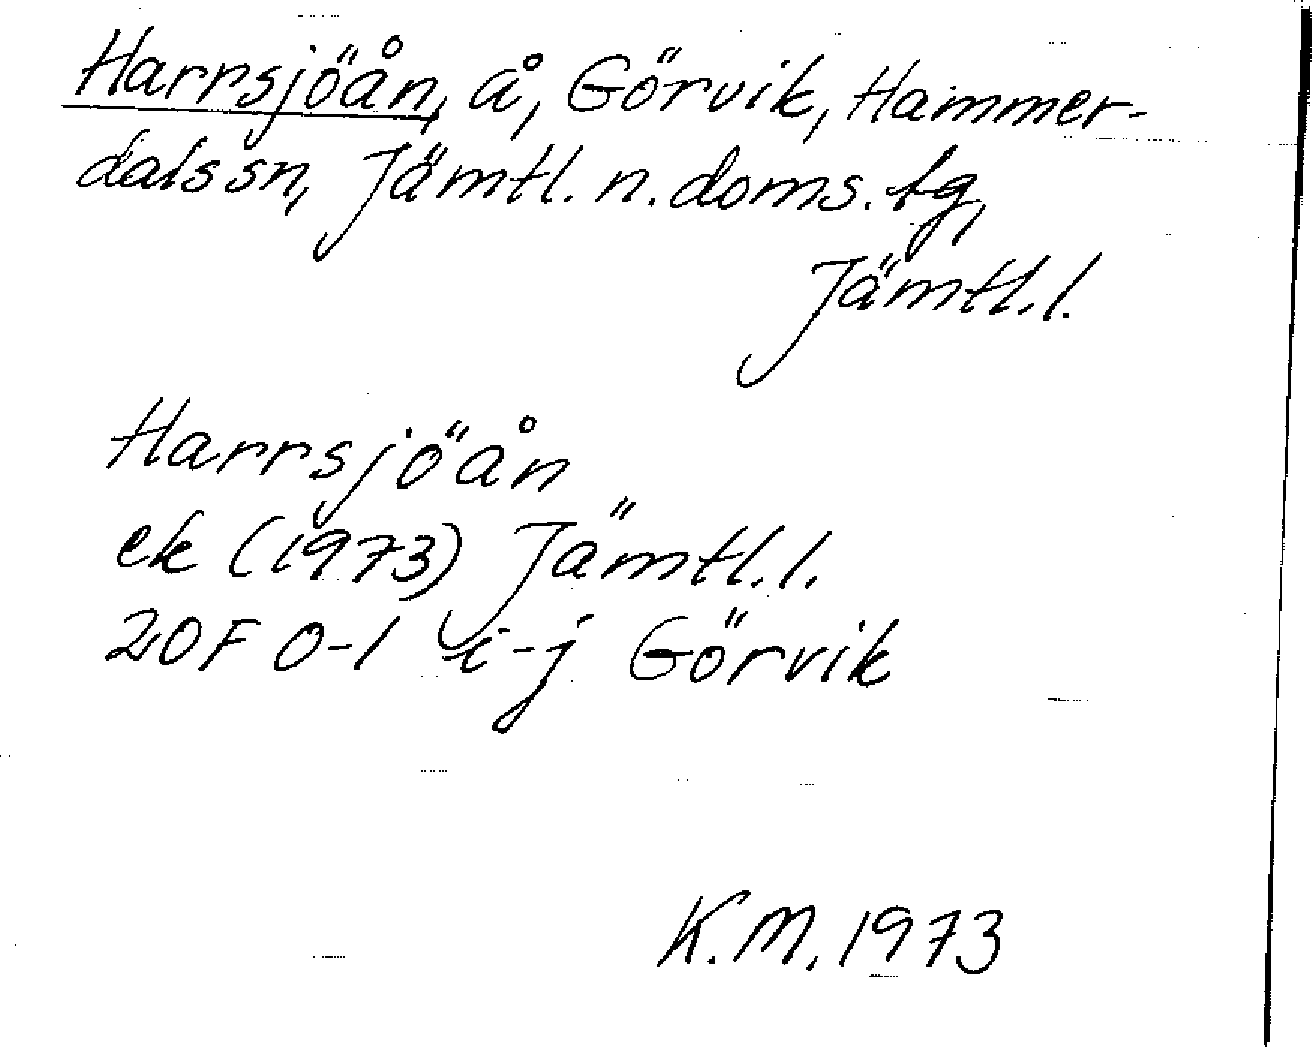 Harrsjöån, å, Görvik, Hammer-
dals sn, Jämtl. n. doms. tg,
Jämtl. l.
Harrsjöån
ek (1973) Jämtl. l.
20F 0-1 i-j Görvik
K.M. 1973